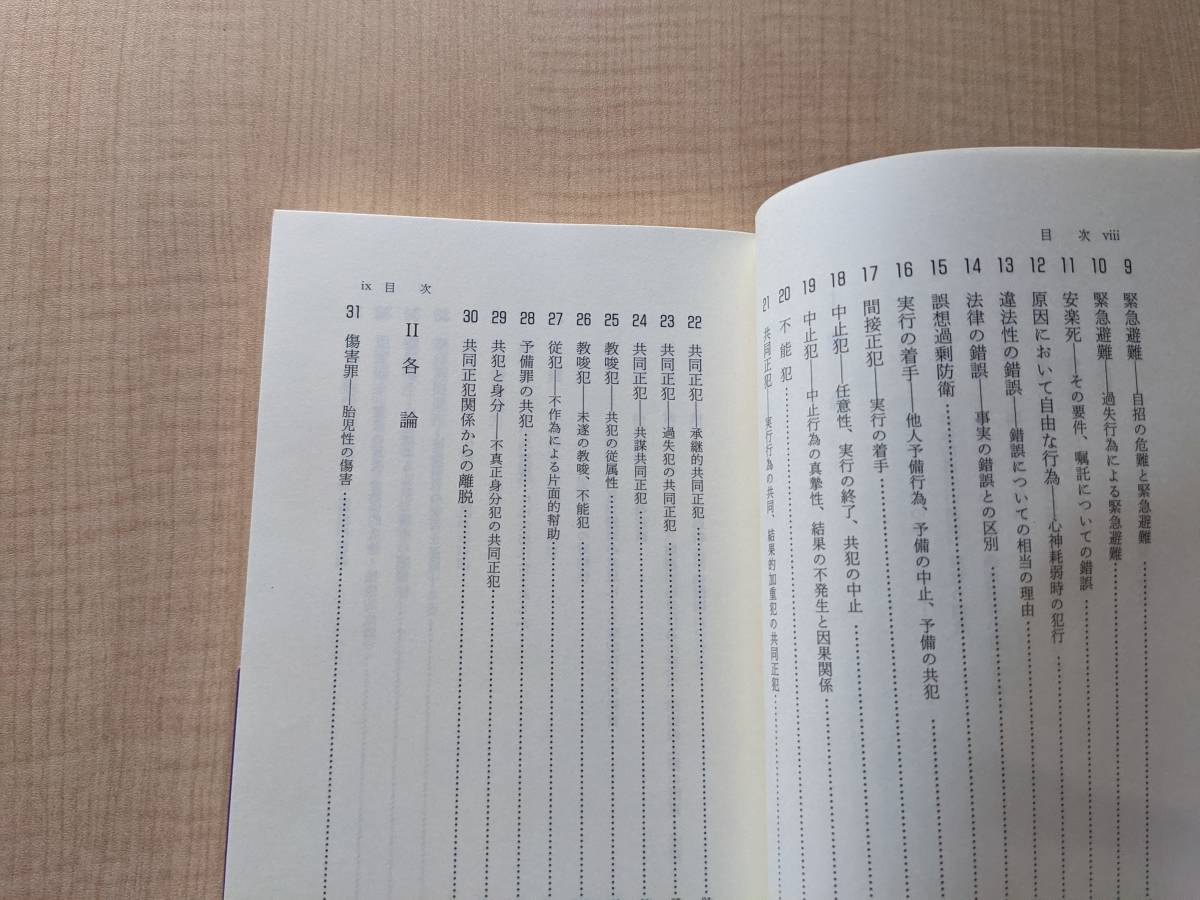 目　次 viii
9 緊急避難――自招の危難と緊急避難
10 緊急避難――過失行為による緊急避難
11 安楽死――その要件、嘱託についての錯誤
12 原因において自由な行為――心神耗弱時の犯行
13 違法性の錯誤――錯誤についての相当の理由
14 法律の錯誤――事実の錯誤との区別
15 誤想過剰防衛
16 実行の着手――他人予備行為、予備の中止、予備の共犯
17 間接正犯――実行の着手
18 中止犯――任意性、実行の終了、共犯の中止
19 中止犯――中止行為の真摯性、結果の不発生と因果関係
20 不能犯
21 共同正犯――実行行為の共同、結果的加重犯の共同正犯
ix 目　次
22 共同正犯――承継的共同正犯
23 共同正犯――過失犯の共同正犯
24 共同正犯――共謀共同正犯
25 教唆犯――共犯の従属性
26 教唆犯――未遂の教唆、不能犯
27 従犯――不作為による片面的幇助
28 予備罪の共犯
29 共犯と身分――不真正身分犯の共同正犯
30 共同正犯関係からの離脱
II 各　論
31 傷害罪――胎児性の傷害